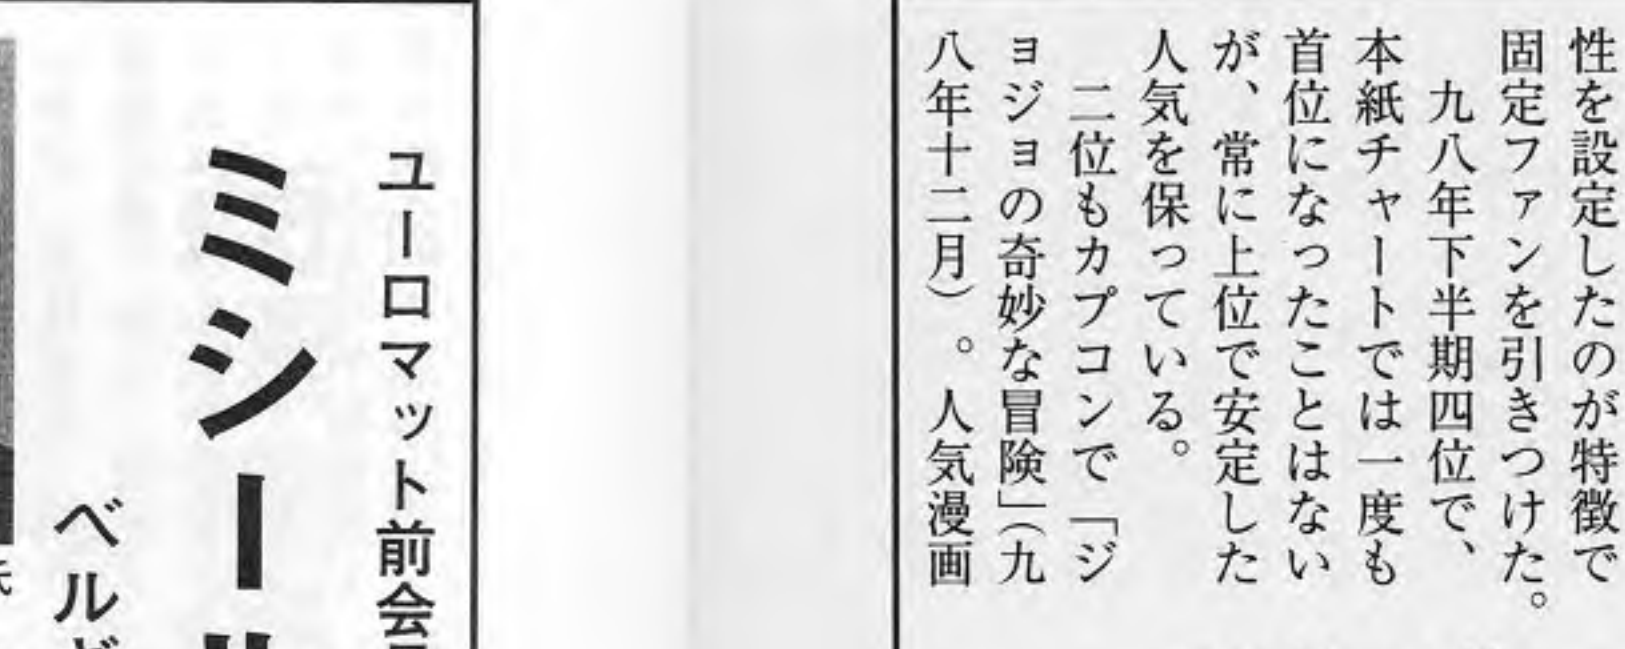 性を設定したのが特徴で
固定ファンを引きつけた。
九八年下半期四位で、
本紙チャートでは一度も
首位になったことはない
が、常に上位で安定した
人気を保っている。
二位もカプコンで「ジ
ョジョの奇妙な冒険」（九
八年十二月）。人気漫画
ユーロマット前会
ミシー
ベル
氏